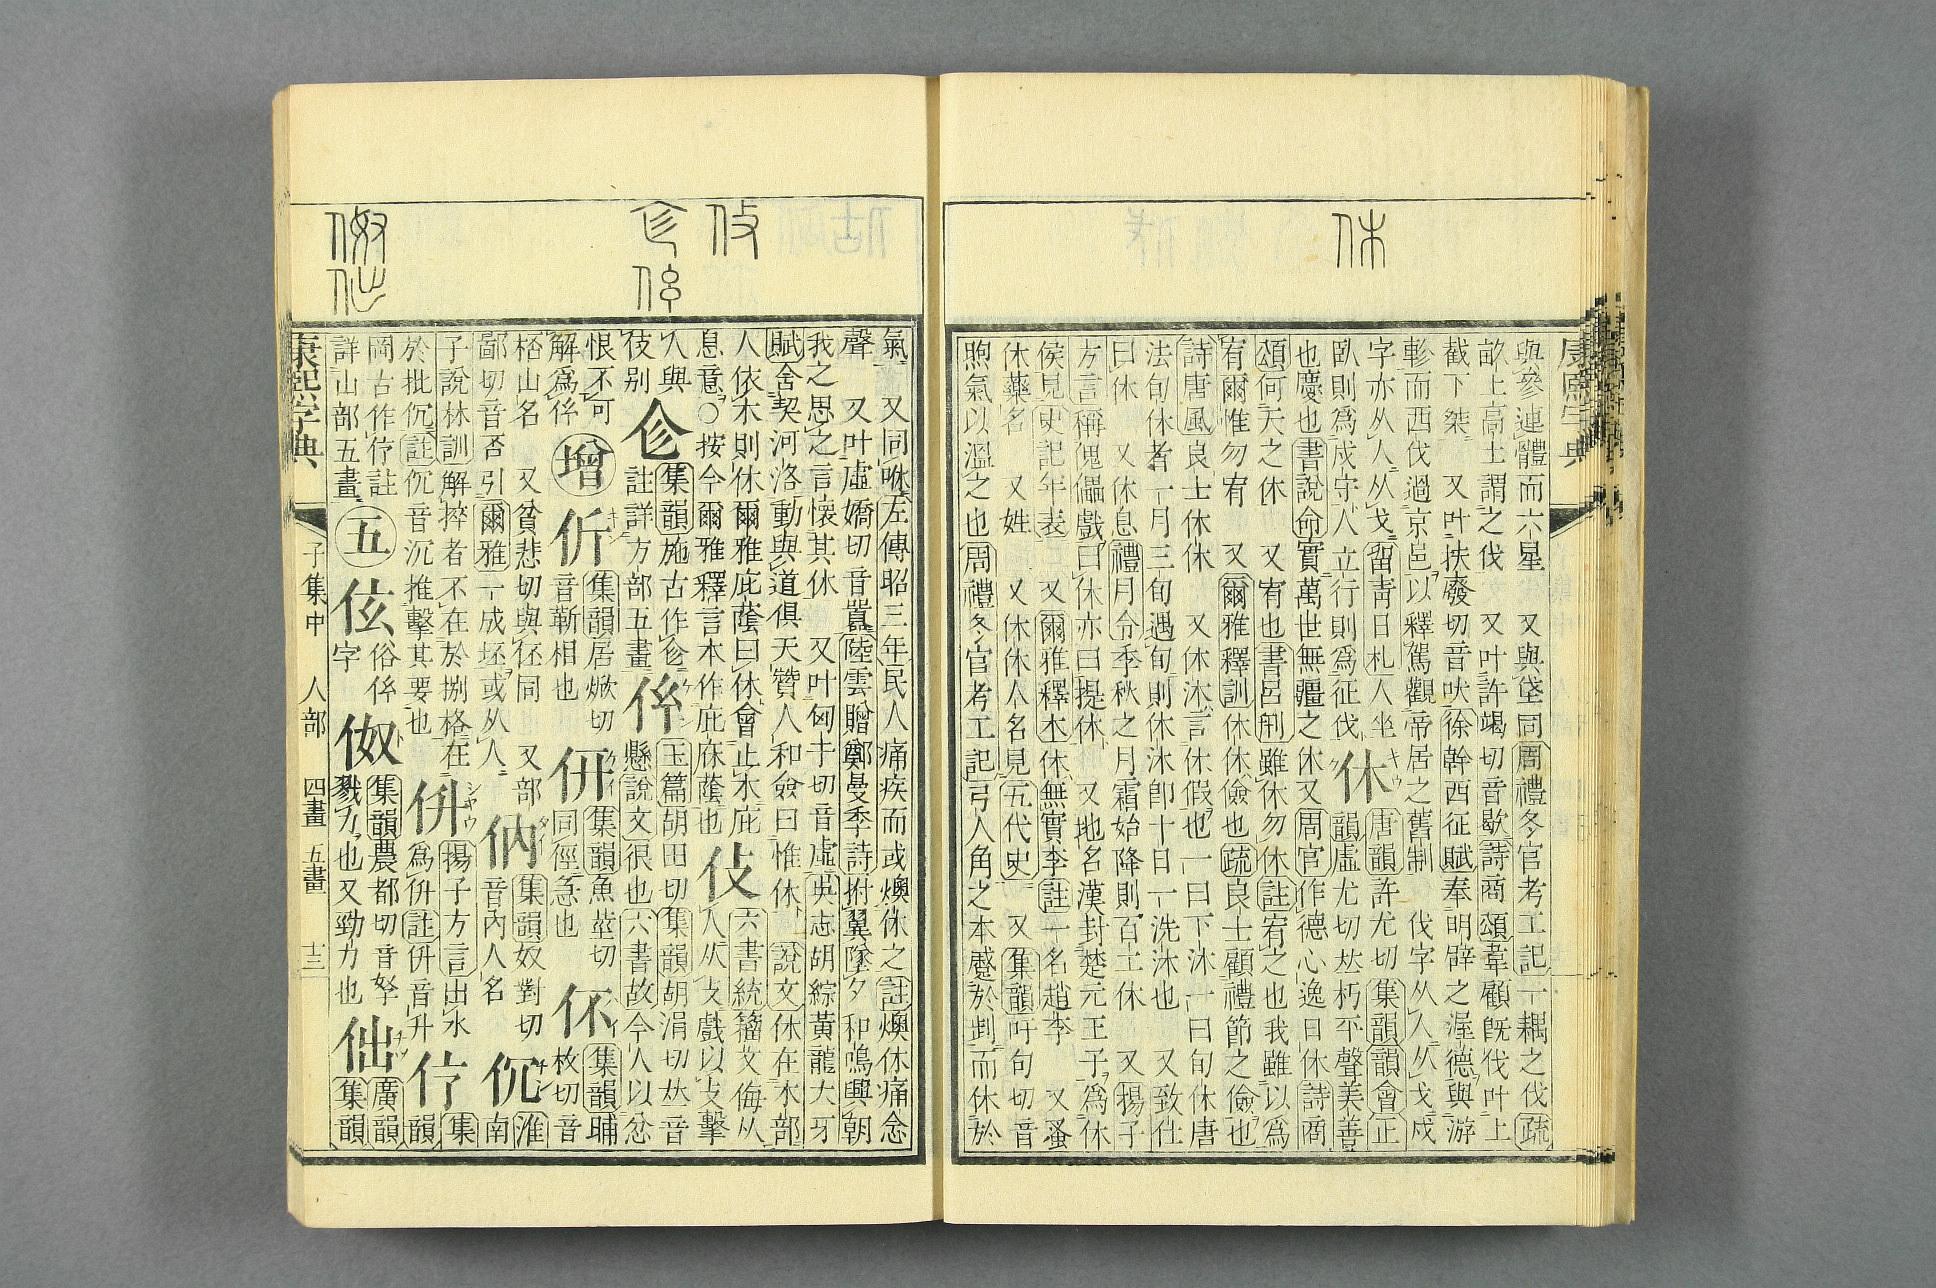 休
康熙字典
與參連體而六星 又與垡同周禮冬官考工記一耦之伐疏
畝上高土謂之伐 又叶許竭切音歇詩商頌韋顧旣伐叶上
截下桀 又叶扶廢切音吠徐幹西征賦奉明辟之渥德與游
軫而西伐過京邑以釋駕觀帝居之舊制 伐字从人从戈戍
字亦从人从戈留靑日札人坐
臥則爲戍守人立行則爲征伐
休
唐韻許尤切集韻韻會正
韻虛尤切𠀤朽平聲美善
也慶也書說命實萬世無疆之休又周官作德心逸日休詩商
頌何天之休 又宥也書呂刑雖休勿休註宥之也我雖以爲
宥爾惟勿宥 又爾雅釋訓休休儉也疏良士顧禮節之儉也
詩唐風良士休休 又休沐言休假也一曰下沐一曰旬休唐
法旬休者一月三旬遇旬則休沐卽十日一洗沐也 又致仕
曰休 又休息禮月令季秋之月霜始降則百工休 又揚子
方言稱傀儡戲曰休亦曰提休 又地名漢封楚元王子爲休
侯見史記年表 又爾雅釋木休無實李註一名趙李 又蚤
休藥名 又姓 又休休人名見五代史 又集韻吁句切音
煦氣以溫之也周禮冬官考工記弓人角之本蹙於𠜶而休於
伇 仺 伭
伮 㑁
氣 又同咻左傳昭三年民人痛疾而或燠休之註燠休痛念
聲 又叶虛嬌切音囂陸雲贈鄭曼季詩拊翼墜夕和鳴興朝
我之思之言懷其休 又叶匈于切音虛吳志胡綜黃龍大牙
賦舍契河洛動與道俱天贊人和僉曰惟休 說文休在木部
人依木則休爾雅庇蔭曰休會止木庇
息意○按今爾雅釋言本作庇庥蔭也
伇
六書統籀文侮从
人从攴戲以攴擊
人與
伎别
㐱
集韻施古作㐱
註詳方部五畫
伭
玉篇胡田切集韻胡涓切𠀤音
懸說文很也六書故今人以忿
恨不可
解爲伭
增
伒
集韻居焮切
音靳相也
併
集韻魚莖切
同俓急也
伓
集韻晡
枚切音
桮山名 又貧悲切與伾同 又部
鄙切音否引爾雅一成坯或从人
㐻
集韻奴對切
音內人名
伔
淮
南
子說林訓解捽者不在於捌格在
於批伔註伔音沉推擊其要也
㑂
揚子方言出㲽
爲㑂註㑂音升
㐸
集
韻
岡古作㐸註
詳山部五畫
五
伭
俗伭
字
伮
集韻農都切音孥
戮力也又勁力也
㑁
廣韻
集韻
康熙字典
子集中 人部 四畫 五畫 十三